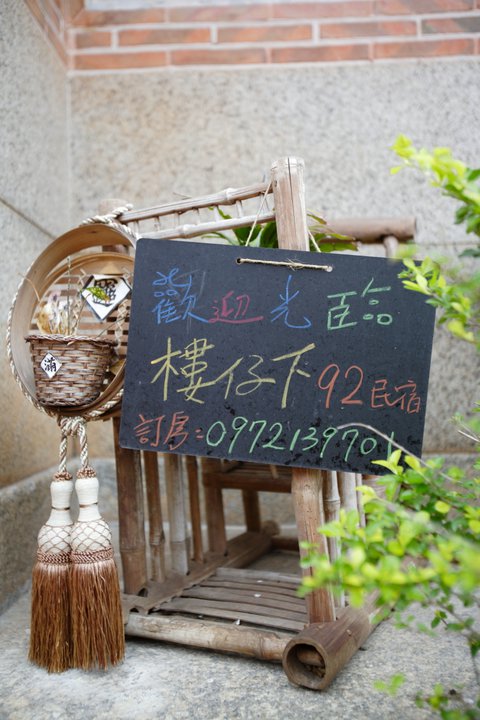 歡迎光臨
樓仔下92民宿
訂房:0972139701
滿